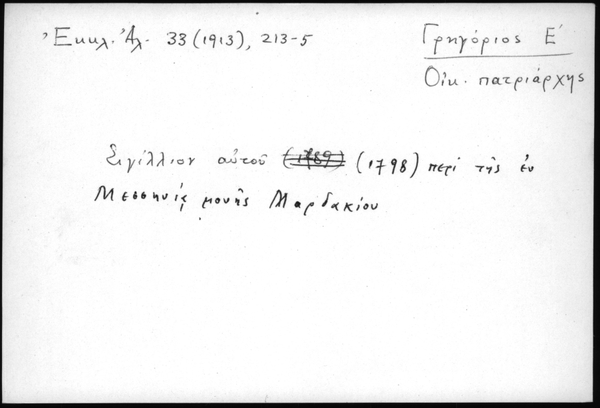 Ἐκκλ. Ἀλ. 33 (1913), 213-5
Γρηγόριος Ε΄
Οἰκ. πατριάρχης
Σιγίλλιον αὐτοῦ (1789) (1798) περί τῆς ἐν
Μεσσηνίᾳ μονῆς Μαρδακίου